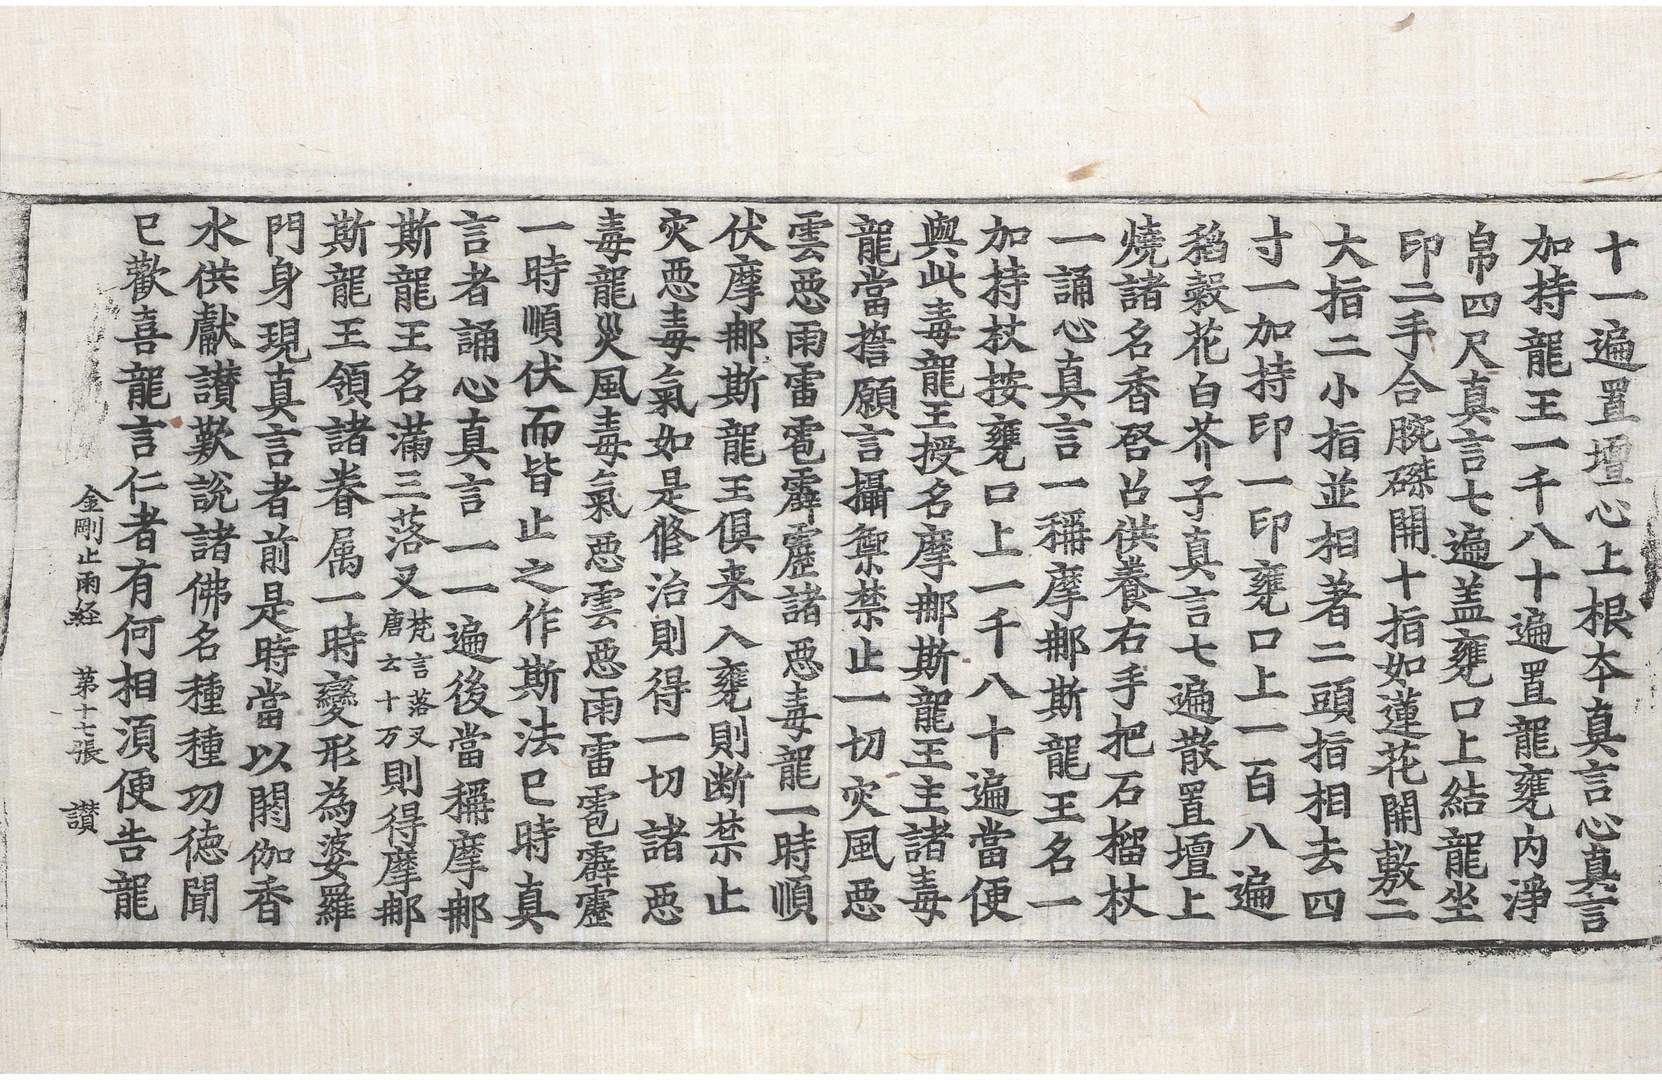 十一遍置壇心上根夲真言心真言
加持龍王一千八十遍置龍甕内淨
帛四尺真言七遍盖甕口上結龍坐
印二手合腕磔開十指如蓮花開敷二
大指二小指並相著二頭指相去四
寸一加持印一印甕口上一百八遍
稻糓花白芥子真言七遍散置壇上
燒諸名香啓召供養右手把石榴杖
一誦心真言一稱摩那斯龍王名一
加持杖按甕口上一千八十遍當便
與此毒龍王授名摩那斯龍王主諸毒
龍當擔願言攝禦禁止一切灾風惡
雲惡雨雷雹霹靂諸惡毒龍一時順
伏摩那斯龍王俱来入甕則断禁止
灾惡毒氣如是修治則得一切諸惡
毒龍災風毒氣惡雲惡雨雷雹霹靂
一時順伏而皆止之作斯法已時真
言者誦心真言一一遍後當稱摩那
斯龍王名滿三落叉梵言落叉唐云十万則得摩那
斯龍王領諸眷属一時變形為婆羅
門身現真言者前是時當以閼伽香
水供獻讃歎説諸佛名種種功徳聞
已歡喜龍言仁者有何相湏便告龍
金剛止雨経 第十七張 讃